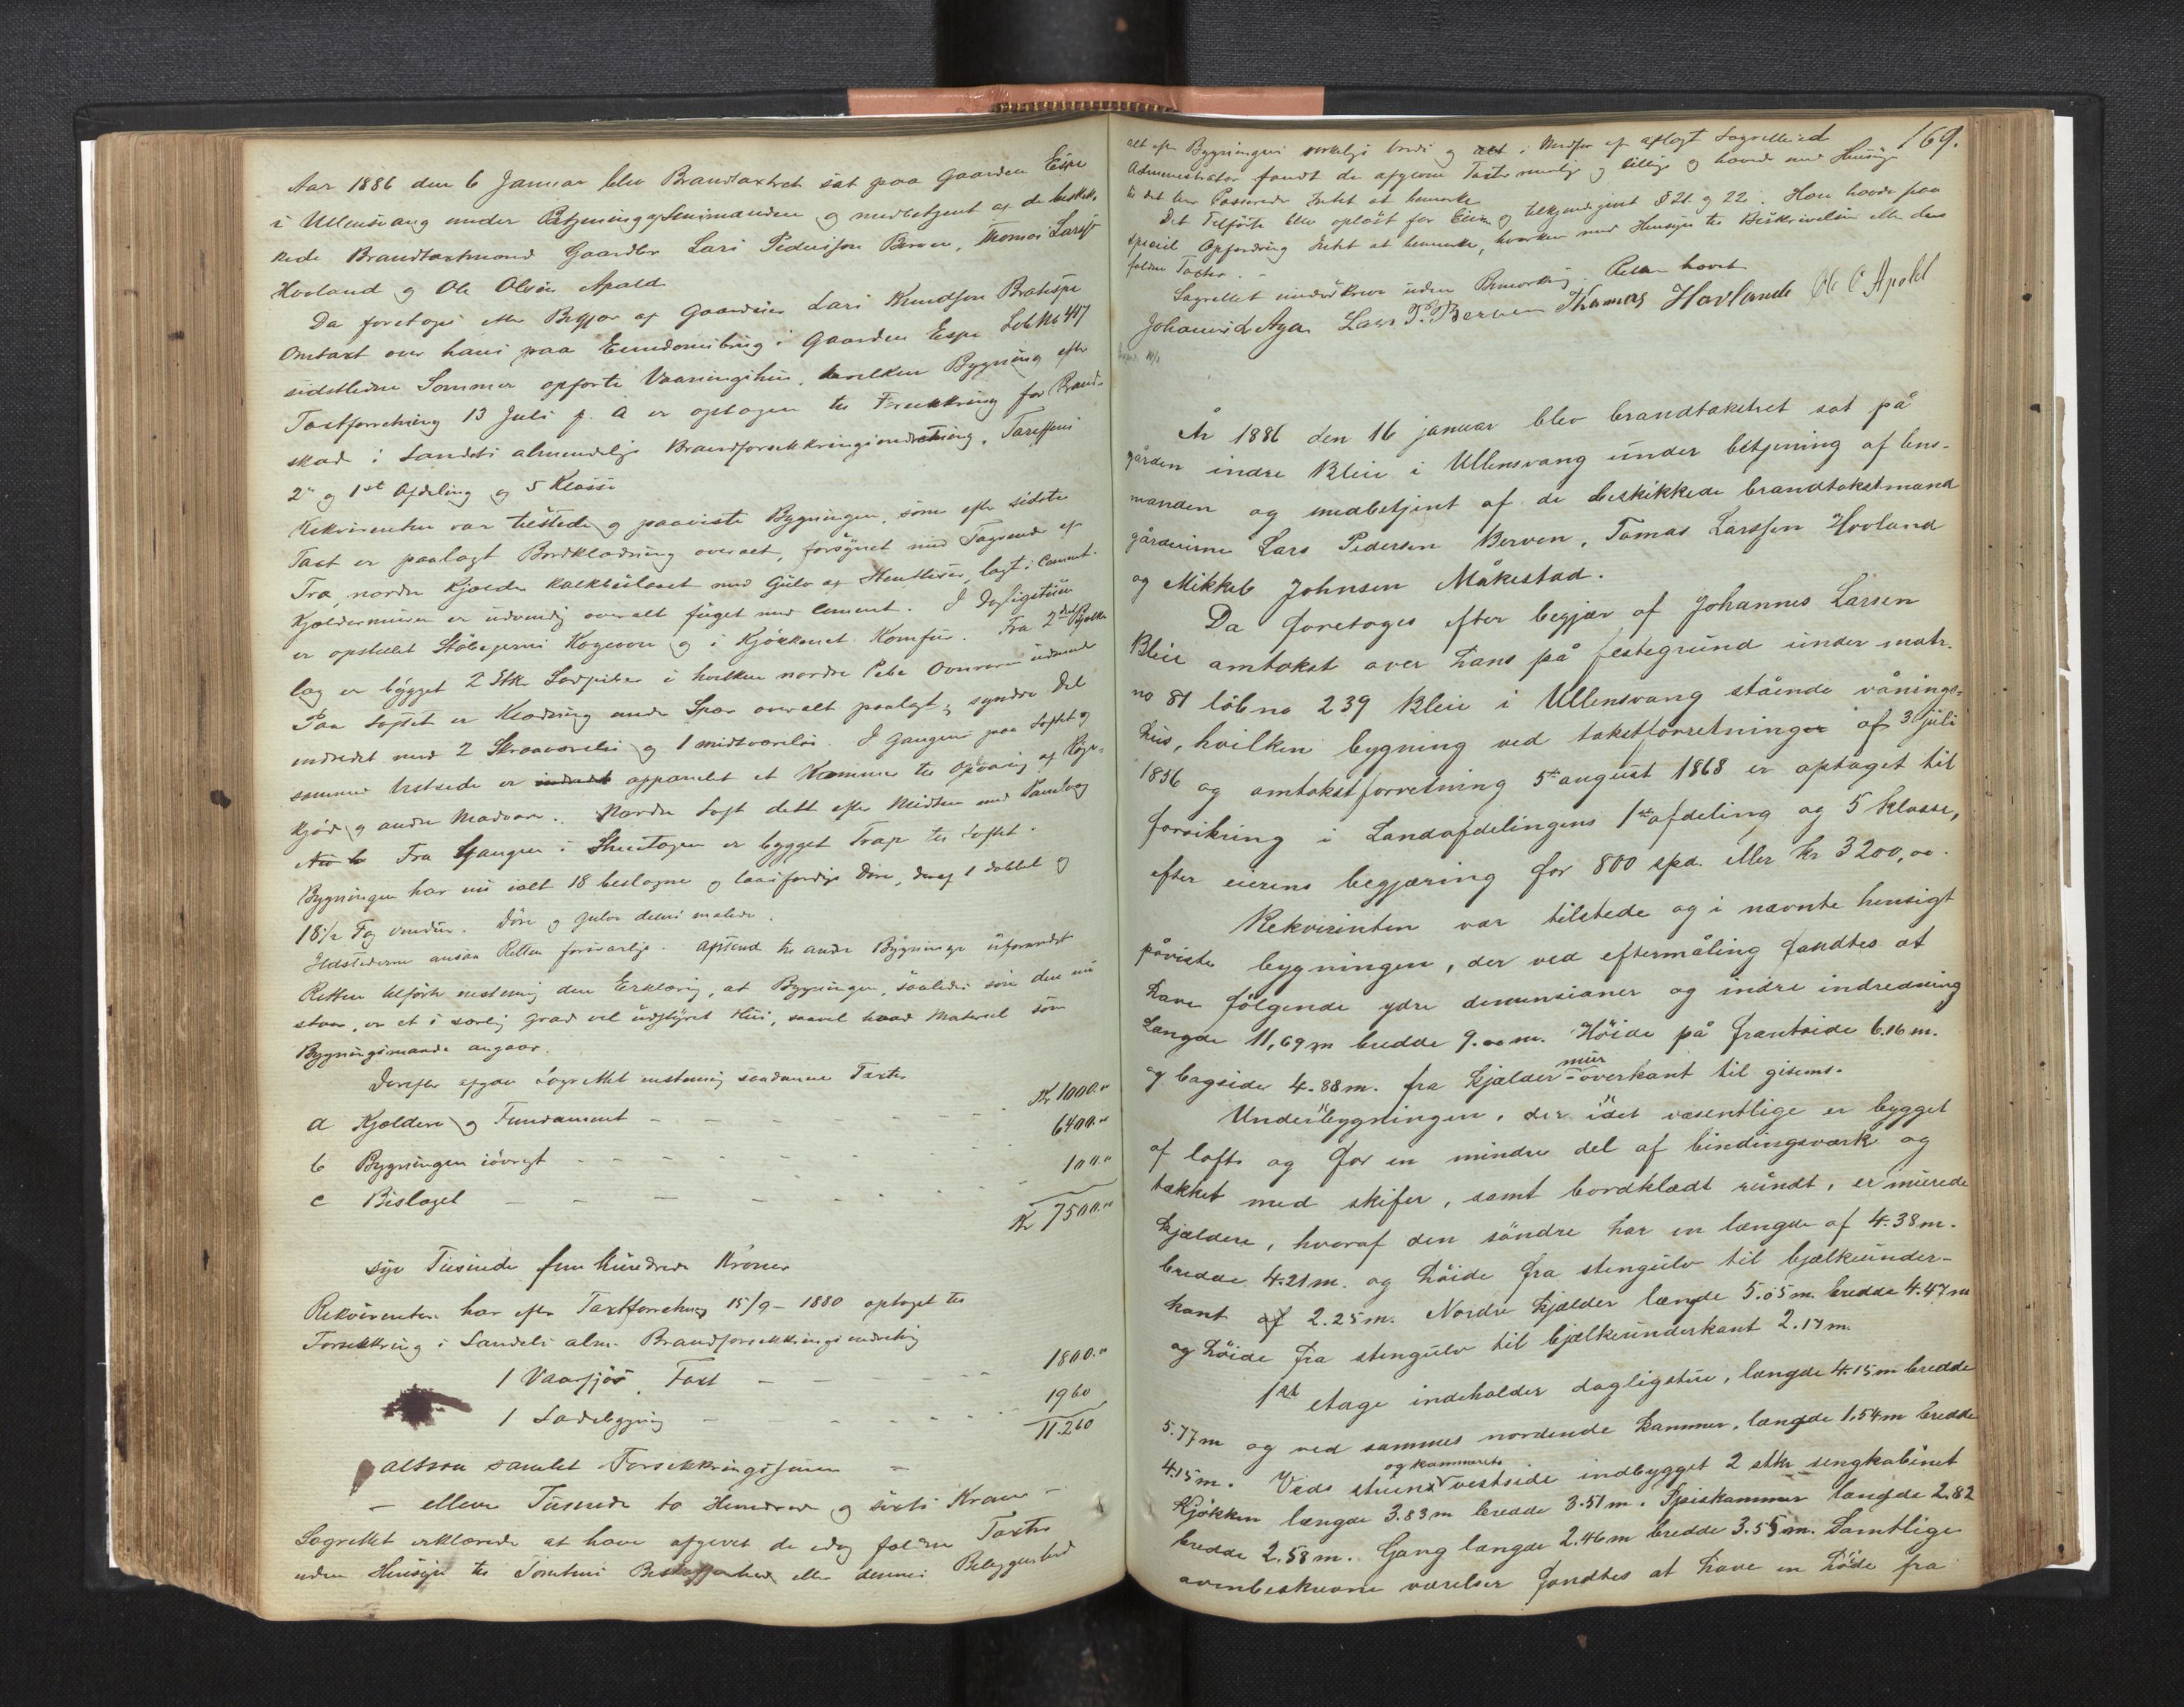 Aar 1886 den 6 Januar blev Brandtaxtret sat paa Gaarden Espe
i Ullensvang under Betjening af Lensmanden og medbetjent af de beskik-
kede Brandtaxtmænd Gaardbr Lars Pedersen Berven, Thomas Larss.
Hovland og Ole Olsen Apold
Da foretoges efter Begjær af Gaardeier Lars Knudsen Bratespe
Omtaxt over hans paa Eiendomsbrug i Gaarden Espe Løb No 417
sidstleden Sommer opførte Vaaningshus, hvilken Bygning efter
Taxtforretning 13 Juli f. A er optagen til Forsikkring for Brand-
skade i Landets almindelige Brandforsikkringsindretning, Tariffens
2 og 1st Afdeling og 5 Klasse
Rekvirenten var tilstede og paaviste Bygningen, som efter sidste
Taxt er paalagt Bordklædning overalt, forsynet med Tagrender af
Træ, nordre Kjælder kalkpudset med Gulv af Stenheller, lagt i Cement.
Kjældermuren er udvendig overalt fuget med Cement. I Dagligstuen
er opstillet Støbejerns Kogeovn og i Kjøkkenet Komfur. Fra 2det Bjælke
lag er bygget 2 Stkr
Paa Loftet er Klædning under Spær overalt paalagt, syndre Del
indredet med 2 Skraaværelser og 1 midtværelse. I Gangene paa Loftet
sammes Vestside er opparbeidet et Kammer til Opvaring af
Kjød og andre Madvare. Nordre Loft delt efter Midten med Panelvæg
Fra Gangen i Stuetagen er bygget Trap til Loftet.
Bygningen har nu ialt 18 beslagne og laasfærdige Døre, deraf 1 dobbelt og
18 1/2 Fag Vinduer. Døre og Gulve deels malede.
Ildstederne ansaa Retten forsvarlige. Afstand til andre Bygninger uforandret
Retten tilførte enstemmig den Erklæring, at Bygningen, saaledes som den nu
staar, er et i særlig Grad vel udstyret Hus, saavel hvad Materiel som
Bygningsmaade angaar.
Derefter afgav Lagrettet enstemmig saadanne Taxter
a Kjældere og Fundament - - - Kr 1000.00
b Bygningen iøvrigt - - - 6400.00
c Bislaget - - - 100.00
Kr 7500.00
syv Tusinde fem hundrede Kroner
Rekvirenten har efter Taxtforretning 15/9 - 1880 optaget til
Forsikkring i Landets alm. Brandforsikkringsindretning
1 Taxt - - - 1800.00
1 Ladebygning - - - 1960
altsaa samlet Forsikkringssum - 11.260
- elleve Tusinde to Hundrede og sexti Kroner -
Lagrettet erklærede at have afgivet de idag faldne Taxter
uden Hensyn til Tomtens Beskaffenhed eller dennes Beliggenhed
169.
alt efter Bygningens verkelige Værdi og i Medfør af aflagt Lagretteed
Administrator fandt de afgivne Taxter rimelige og billige og havde med Hensyn
til det her Passerede Intet at bemerke
Det Tilførte blev oplæst for Eieren og tilkjendegivet § 21 og 22. Han havde paa
speciel Opfordring Intet at bemerke, hverken med Hensyn til Beskrivelsen eller de
faldne Taxter. -
Lagrettet underskrev uden Bemerkning. Retten hævet
Johannes L Aga Lars P. Berven Thomas Hovland Ole O Apold
År 1886 den 16 januar blev brandtakstret sat på
gården indre Bleie i Ullensvang under betjening af lens-
manden og medbetjent af de beskikkede brandtakstmænd
gårdeierne Lars Pedersen Berven, Tomas Larssen Hovland
og Mikkel Johnsen Måkestad.
Da foretoges efter begjær af Johannes Larsen
Bleie omtakst over hans på festegrund under matr.
no 81 löbno 239 Bleie i Ullensvang stående vånings-
hus, hvilken bygning ved takstforretninger af 3 juli
1856 og omtakstforretning 5te august 1868 er optaget til
forsikring i Landafdelingens 1ste afdeling og 5 klasse,
efter eierens begjæring for 800 spd. eller kr 3200,00.
Rekvirenten var tilstede og i nævnte hensigt
påviste bygningen, der ved eftermåling fandtes at
have fölgende ydre dimensioner og indre indredning
Længde 11,69 m bredde 9.00 m. Höide på frantside 6.16 m.
og bagside 4.88 m. fra kjælder mur-overkant til gesims.
Under bygningen, der i det væsentlige er bygget
af loft og for en mindre del af bindingsværk og
tækket med skifer, samt bordklædt rundt, er murede
kjældere, hvoraf den söndre har en længde af 4.38 m.
bredde 4.21 m. og höide fra stengulv til bjælkeunder-
kant af 2.25 m. Nordre kjælder længde 5.05 m. bredde 4.47 m
og höide fra stengulv til bjælkeunderkant 2.17 m.
1ste etage indeholder dagligstue, længde 4.15 m bredde
5.77 m og ved sammes nordende kammer, længde 1.54 m bredde
4.15 m. Veds stuens og kammerets vestside indbygget 2 stkr sengkabinet
Kjökken længde 3.83 m bredde 3.51 m. Spiskammer længde 2.82
bredde 2.58 m. Gang længde 2.46 m bredde 3.55 m. Samtlige
ovenbeskrevne værelser fandtes at have en höide fra